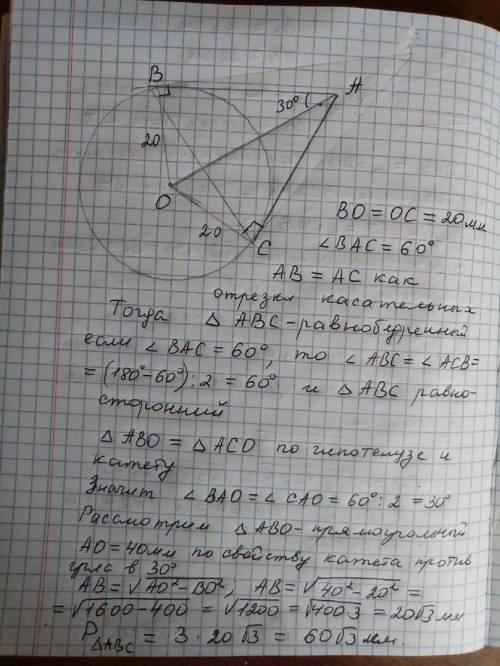 B
A
30°
20
O
20
C
BO = OC = 20мм
∠BAC = 60°
AB = AC как
отрезки касательных
Тогда △ ABC - равнобедренный
если ∠ BAC = 60°, то ∠ ABC = ∠ ACB =
= (180° - 60°) : 2 = 60° и △ ABC равно-
сторонний
△ ABO = △ ACO по гипотенузе и
катету
Значит ∠ BAO = ∠ CAO = 60° : 2 = 30°
Рассмотрим △ ABO - прямоугольный
AO = 40мм по свойству катета против
угла в 30°
AB = √AO² - BO², AB = √40² - 20² =
= √1600 - 400 = √1200 = √400·3 = 20√3 мм
P△ABC = 3 · 20√3 = 60√3 мм.